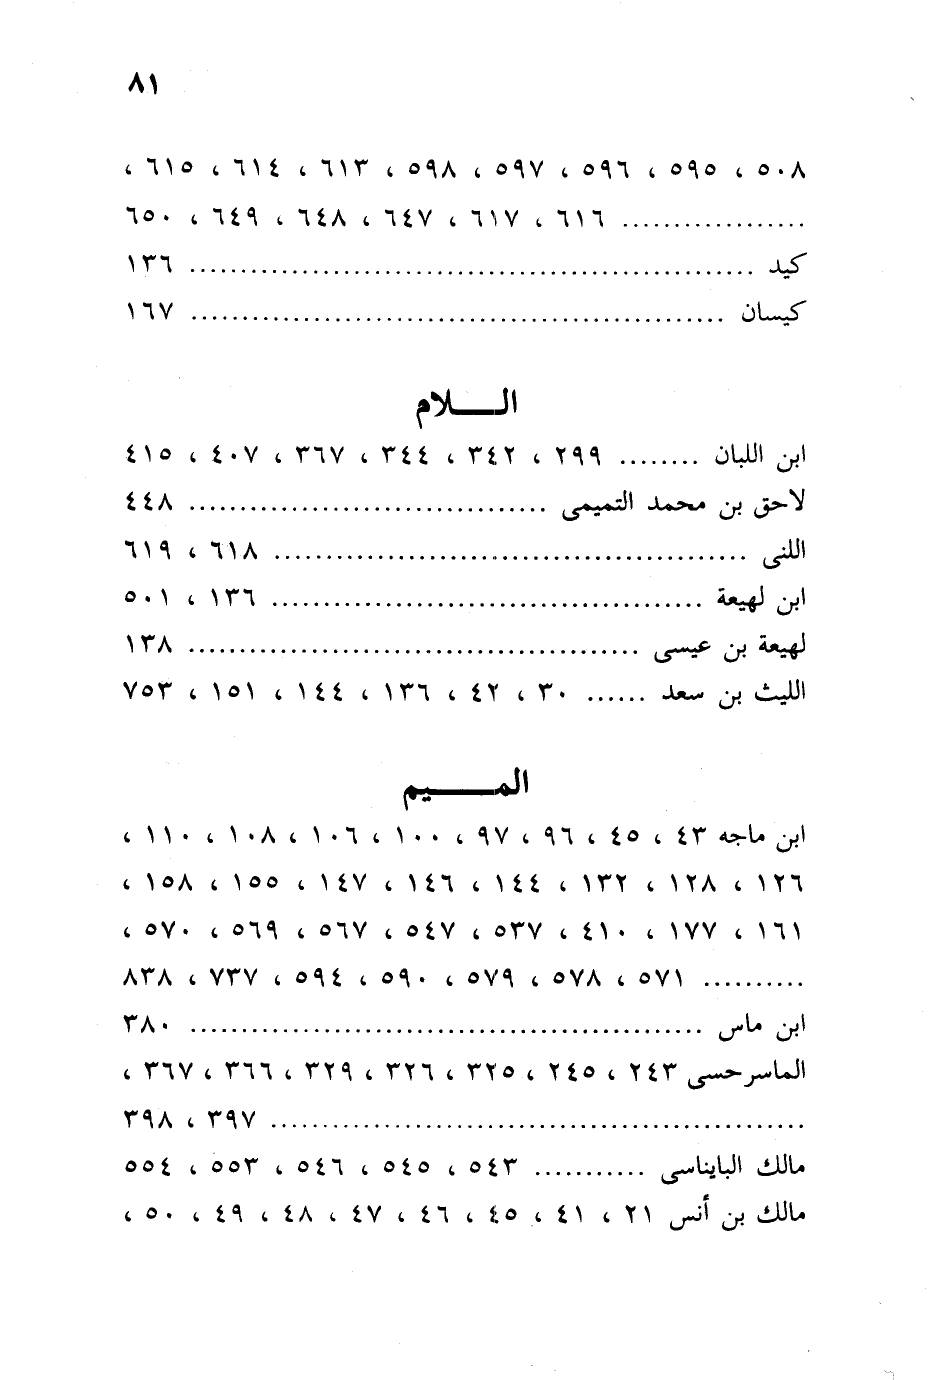 ٨١
٥٠٨ ، ٥٩٥ ، ٥٩٦ ، ٥٩٧ ، ٥٩٨ ، ٦١٣ ، ٦١٤ ، ٦١٥ ،
.................. ٦١٦ ، ٦١٧ ، ٦٤٧ ، ٦٤٨ ، ٦٤٩ ، ٦٥٠
كيد ........................................................ ١٣٦
كيسان ..................................................... ١٦٧
الـــلام
ابن اللبان ........ ٢٩٩ ، ٣٤٢ ، ٣٤٤ ، ٣٦٧ ، ٤٠٧ ، ٤١٥
لاحق بن محمد التميمى ................................... ٤٤٨
اللنى ............................................... ٦١٨ ، ٦١٩
ابن لهيعة ........................................... ١٣٦ ، ٥٠١
لهيعة بن عيسى ............................................. ١٣٨
الليث بن سعد ...... ٣٠ ، ٤٢ ، ١٣٦ ، ١٤٤ ، ١٥١ ، ٧٥٣
الميـــم
ابن ماجه ٤٣ ، ٤٥ ، ٩٦ ، ٩٧ ، ١٠٠ ، ١٠٦ ، ١٠٨ ، ١١٠ ،
١٢٦ ، ١٢٨ ، ١٣٢ ، ١٤٤ ، ١٤٦ ، ١٤٧ ، ١٥٥ ، ١٥٨ ،
١٦١ ، ١٧٧ ، ٤١٠ ، ٥٣٧ ، ٥٤٧ ، ٥٦٧ ، ٥٦٩ ، ٥٧٠ ،
.......... ٥٧١ ، ٥٧٨ ، ٥٧٩ ، ٥٩٠ ، ٥٩٤ ، ٧٣٧ ، ٨٣٨
ابن ماس ................................................... ٣٨٠
الماسرحسى ٢٤٣ ، ٢٤٥ ، ٣٢٥ ، ٣٢٦ ، ٣٢٩ ، ٣٦٦ ، ٣٦٧ ،
..................................................... ٣٩٧ ، ٣٩٨
مالك البايناسى ........... ٥٤٣ ، ٥٤٥ ، ٥٤٦ ، ٥٥٣ ، ٥٥٤
مالك بن أنس ٢١ ، ٤١ ، ٤٥ ، ٤٦ ، ٤٧ ، ٤٨ ، ٤٩ ، ٥٠ ،